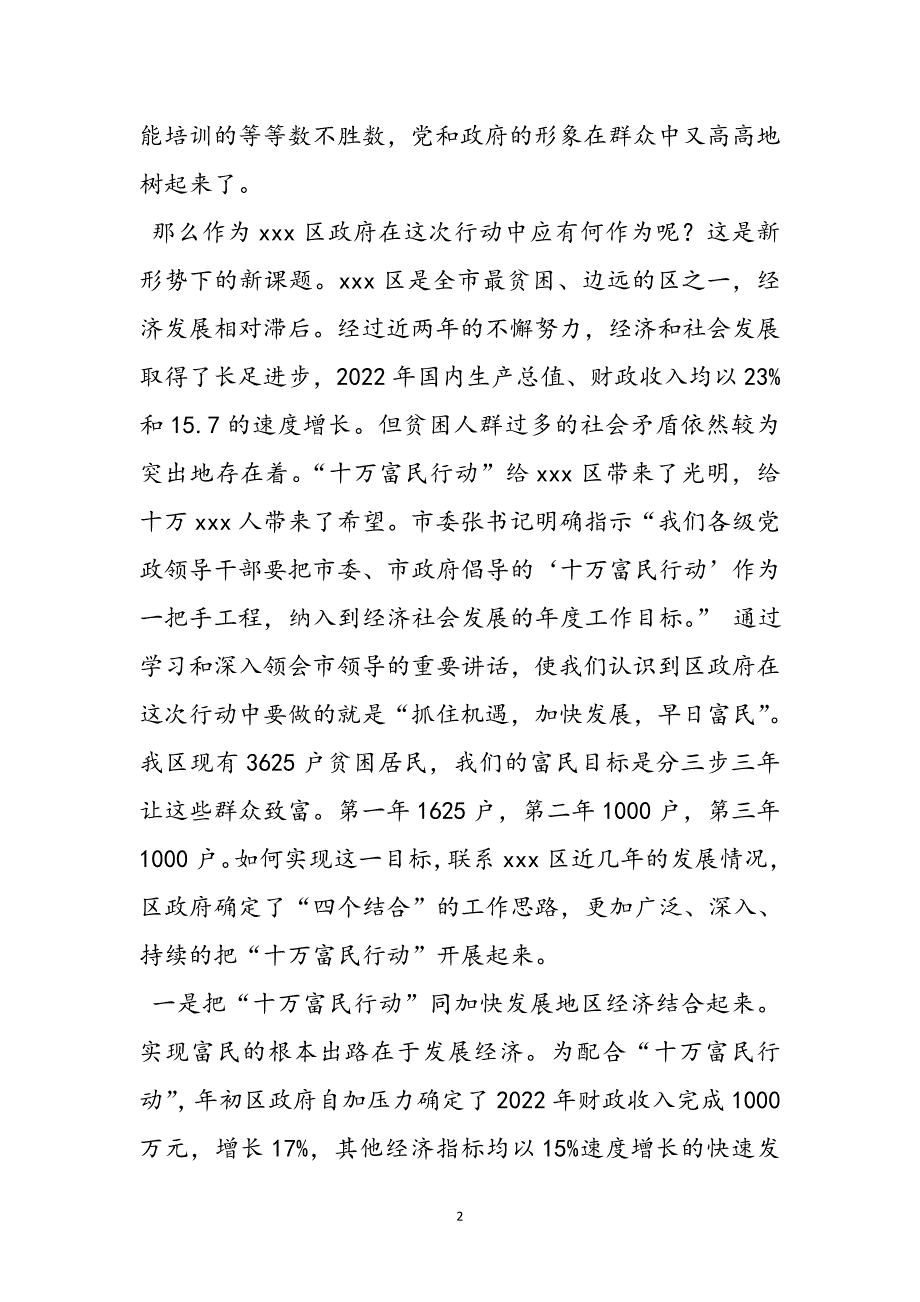 能培训的等等数不胜数，党和政府的形象在群众中又高高地
树起来了。
那么作为 xxx 区政府在这次行动中应有何作为呢？这是新
形势下的新课题。xxx 区是全市最贫困、边远的区之一，经
济发展相对滞后。经过近两年的不懈努力，经济和社会发展
取得了长足进步，2022 年国内生产总值、财政收入均以 23%
和 15.7 的速度增长。但贫困人群过多的社会矛盾依然较为
突出地存在着。“十万富民行动”给 xxx 区带来了光明，给
十万 xxx 人带来了希望。市委张书记明确指示“我们各级党
政领导干部要把市委、市政府倡导的‘十万富民行动’作为
一把手工程，纳入到经济社会发展的年度工作目标。” 通过
学习和深入领会市领导的重要讲话，使我们认识到区政府在
这次行动中要做的就是“抓住机遇，加快发展，早日富民”。
我区现有 3625 户贫困居民，我们的富民目标是分三步三年
让这些群众致富。第一年 1625 户，第二年 1000 户，第三年
1000 户。如何实现这一目标，联系 xxx 区近几年的发展情况，
区政府确定了“四个结合”的工作思路，更加广泛、深入、
持续的把“十万富民行动”开展起来。
一是把“十万富民行动”同加快发展地区经济结合起来。
实现富民的根本出路在于发展经济。为配合“十万富民行
动”，年初区政府自加压力确定了 2022 年财政收入完成 1000
万元，增长 17%，其他经济指标均以 15%速度增长的快速发
2